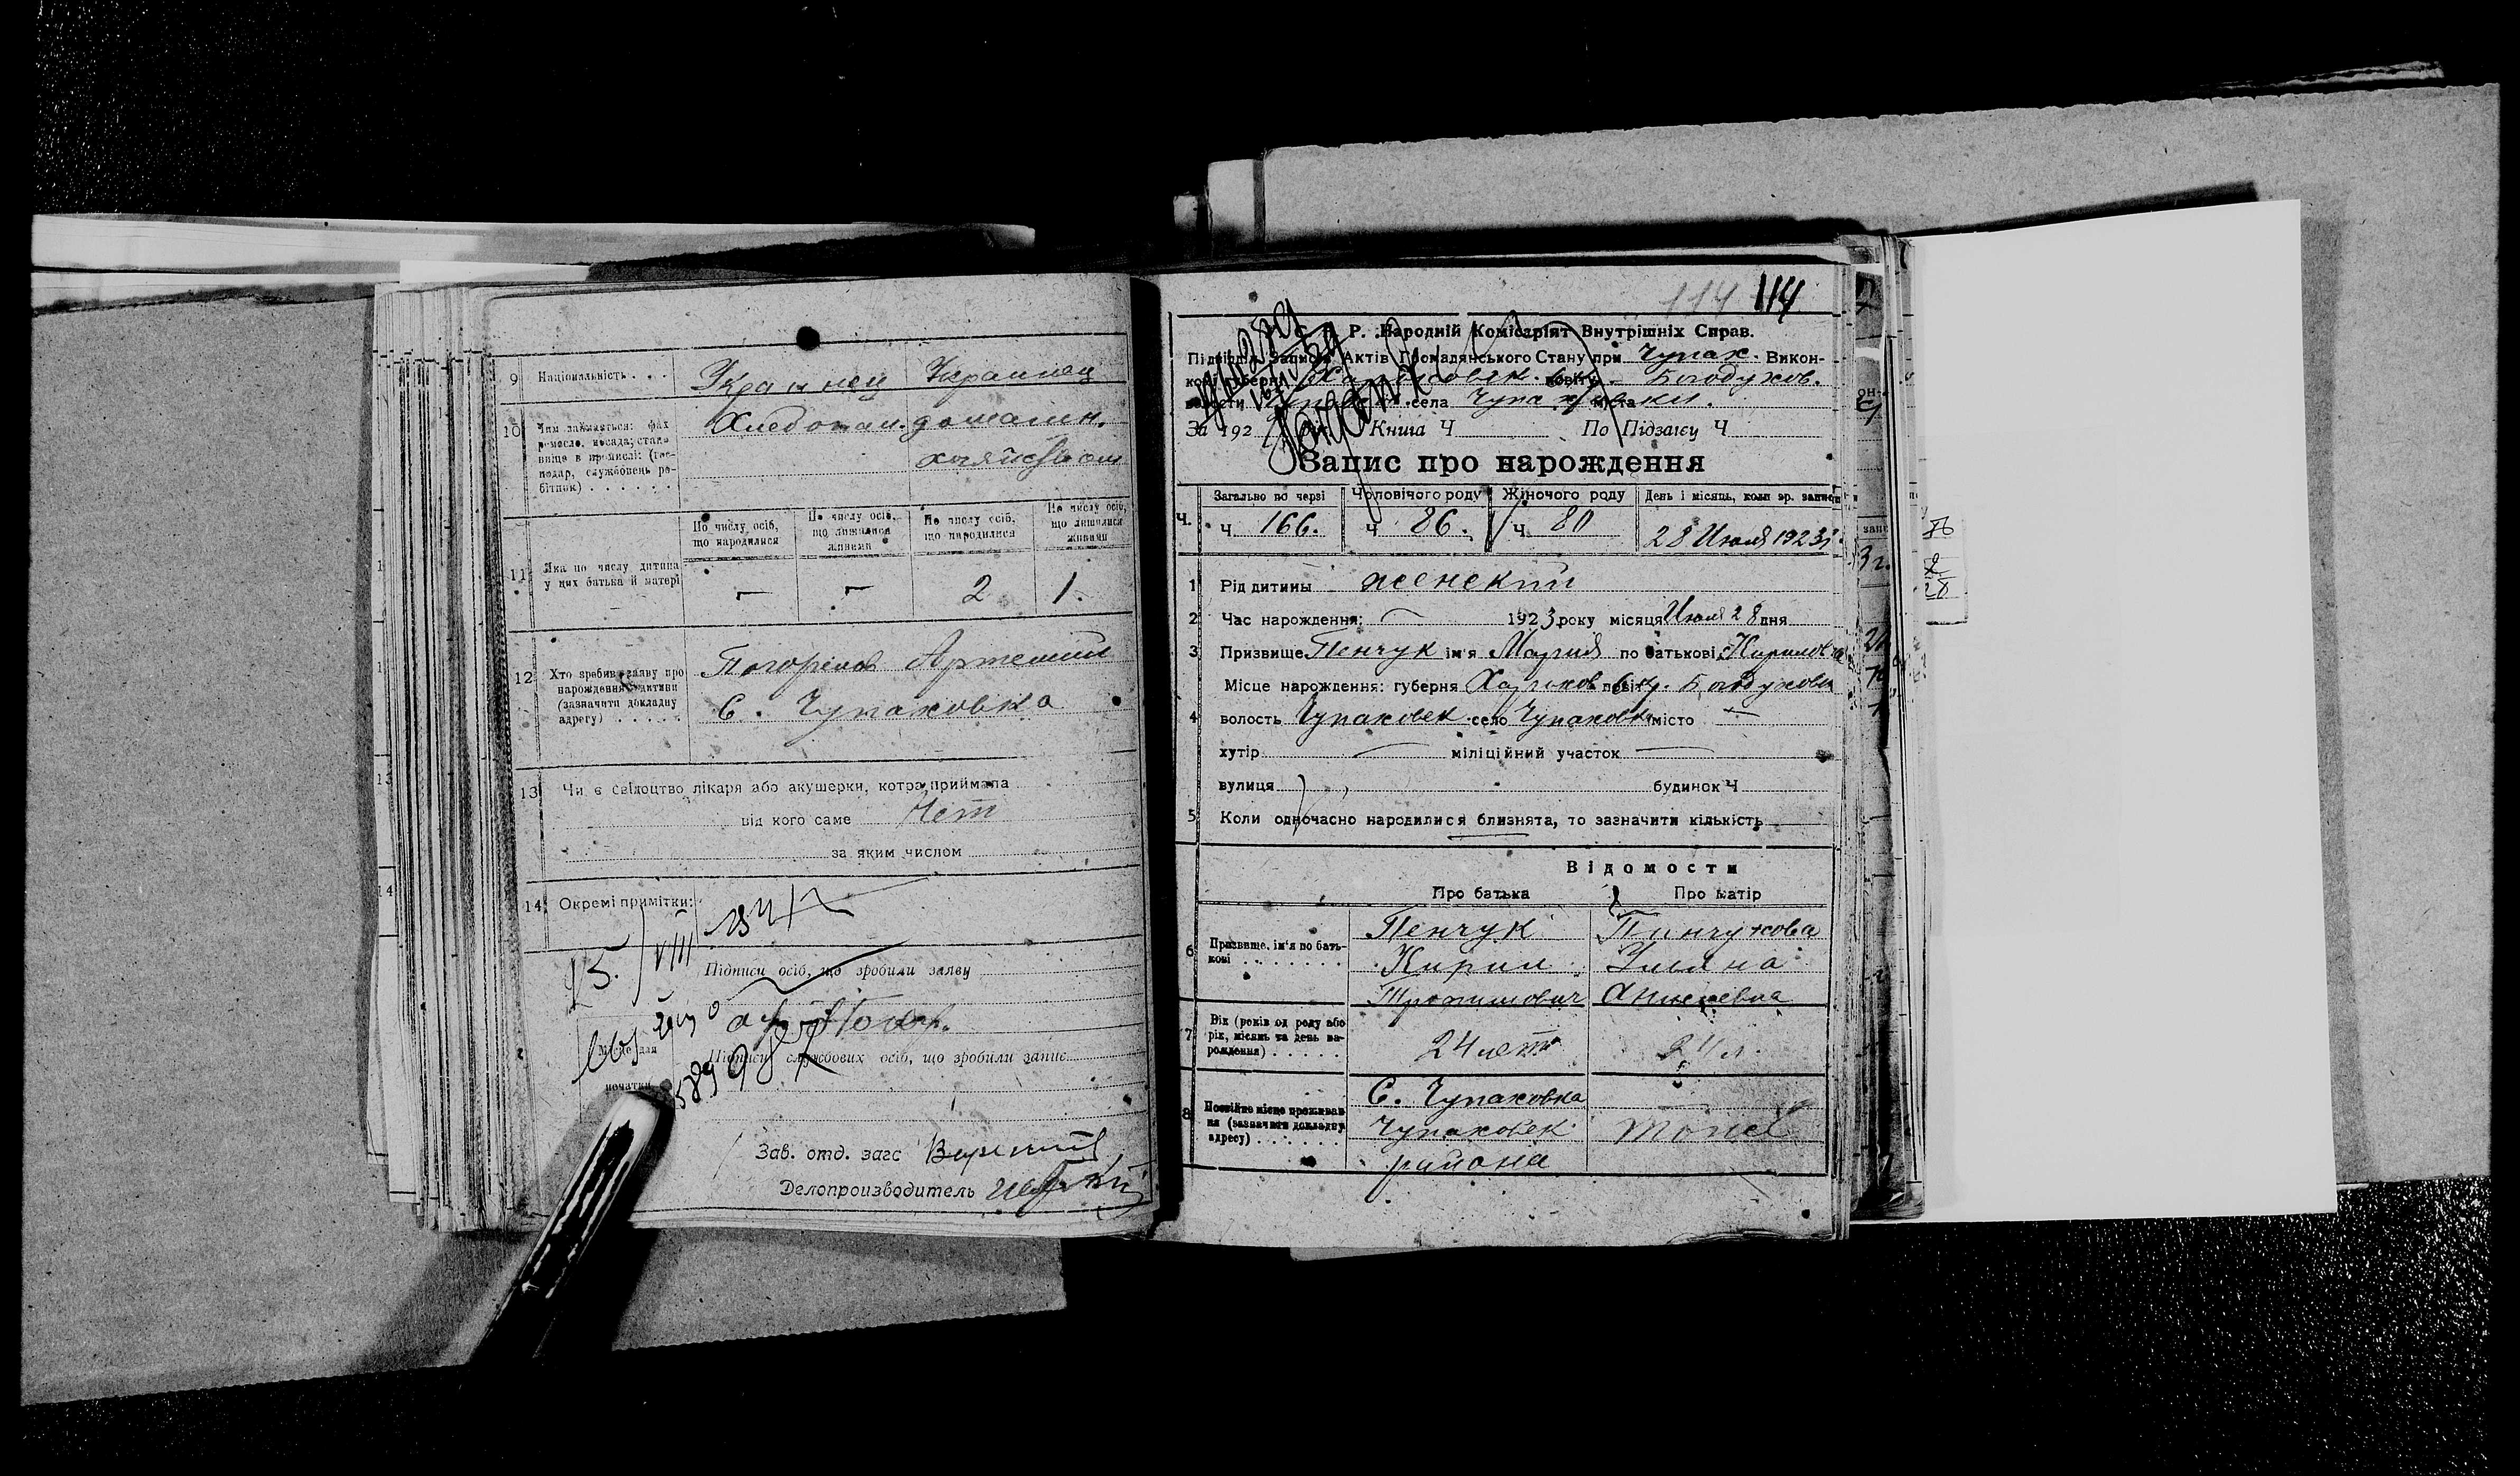 9 Національність . . . Украинец Украинец
10 Чим займається: фах
ремесло, посада; стано-
вище в промислі: (гос-
подар, службовець ро-
бітник) . . . . . .
Хлебопаш. домашн.
хозяйством
По числу осіб,
що народилися
По числу осіб,
що лишилися
живими
По числу осіб,
що народилися
По числу осіб,
що лишилися
живими
11 Яка по числу дитина
у цих батька й матері
— — 2 1.
12 Хто зробив заяву про
нарождення дитини
(зазначити докладну
адресу) . . . . .
Погорілов Артемий
С. Чупаховка
13 Чи є свідоцтво лікаря або акушерки, котра приймала
від кого саме Нет
за яким числом
14 Окремі примітки:
Підписи осіб, що зробили заяву
Місце для
початки
Підписи службових осіб, що зробили запис
Зав. отд. загс
Делопроизводитель
114 114
С. Р. Народній Комісаріят Внутрішніх Справ.
Підвідділ Записів Актів Громадянського Стану при Чупах. Викон-
комі губерні Харьковск. повіту Богодухов.
волости села Чупаховки. міста
За 192 рік. Книга Ч По Підзагсу Ч
Запис про нарождення
Ч. Загально по черзі Чоловічого роду Жіночого роду День і місяць, коли зр. запис
Ч 166. Ч 86. Ч 80 28 Июля 1923 г.
1 Рід дитины женский
2 Час нарождення: — 1923 року місяця Июля 28 дня
3 Призвище Пенчук ім'я Мария по батькові Кирилов
Місце нарождення: губерня Харьков повіт окр. Богодухов
4 волость Чупаховск. село Чупаховка місто —
хутір — міліційний участок —
вулиця будинок Ч
5 Коли одночасно народилися близнята, то зазначити кількість
Відомости
Про батька Про матір
6 Призвище, ім'я по бать-
кові . . . . . . .
Пенчук Пинчукова
Кирил Ульяна
Трофимович
7 Вік (років од роду або
рік, місяць та день на-
рождення) . . . . .
24 лет 24 л.
8 Постійне місце проживан
ня (зазначити докладну
адресу) . . . . . .
С. Чупаховка
Чупаховск.
района